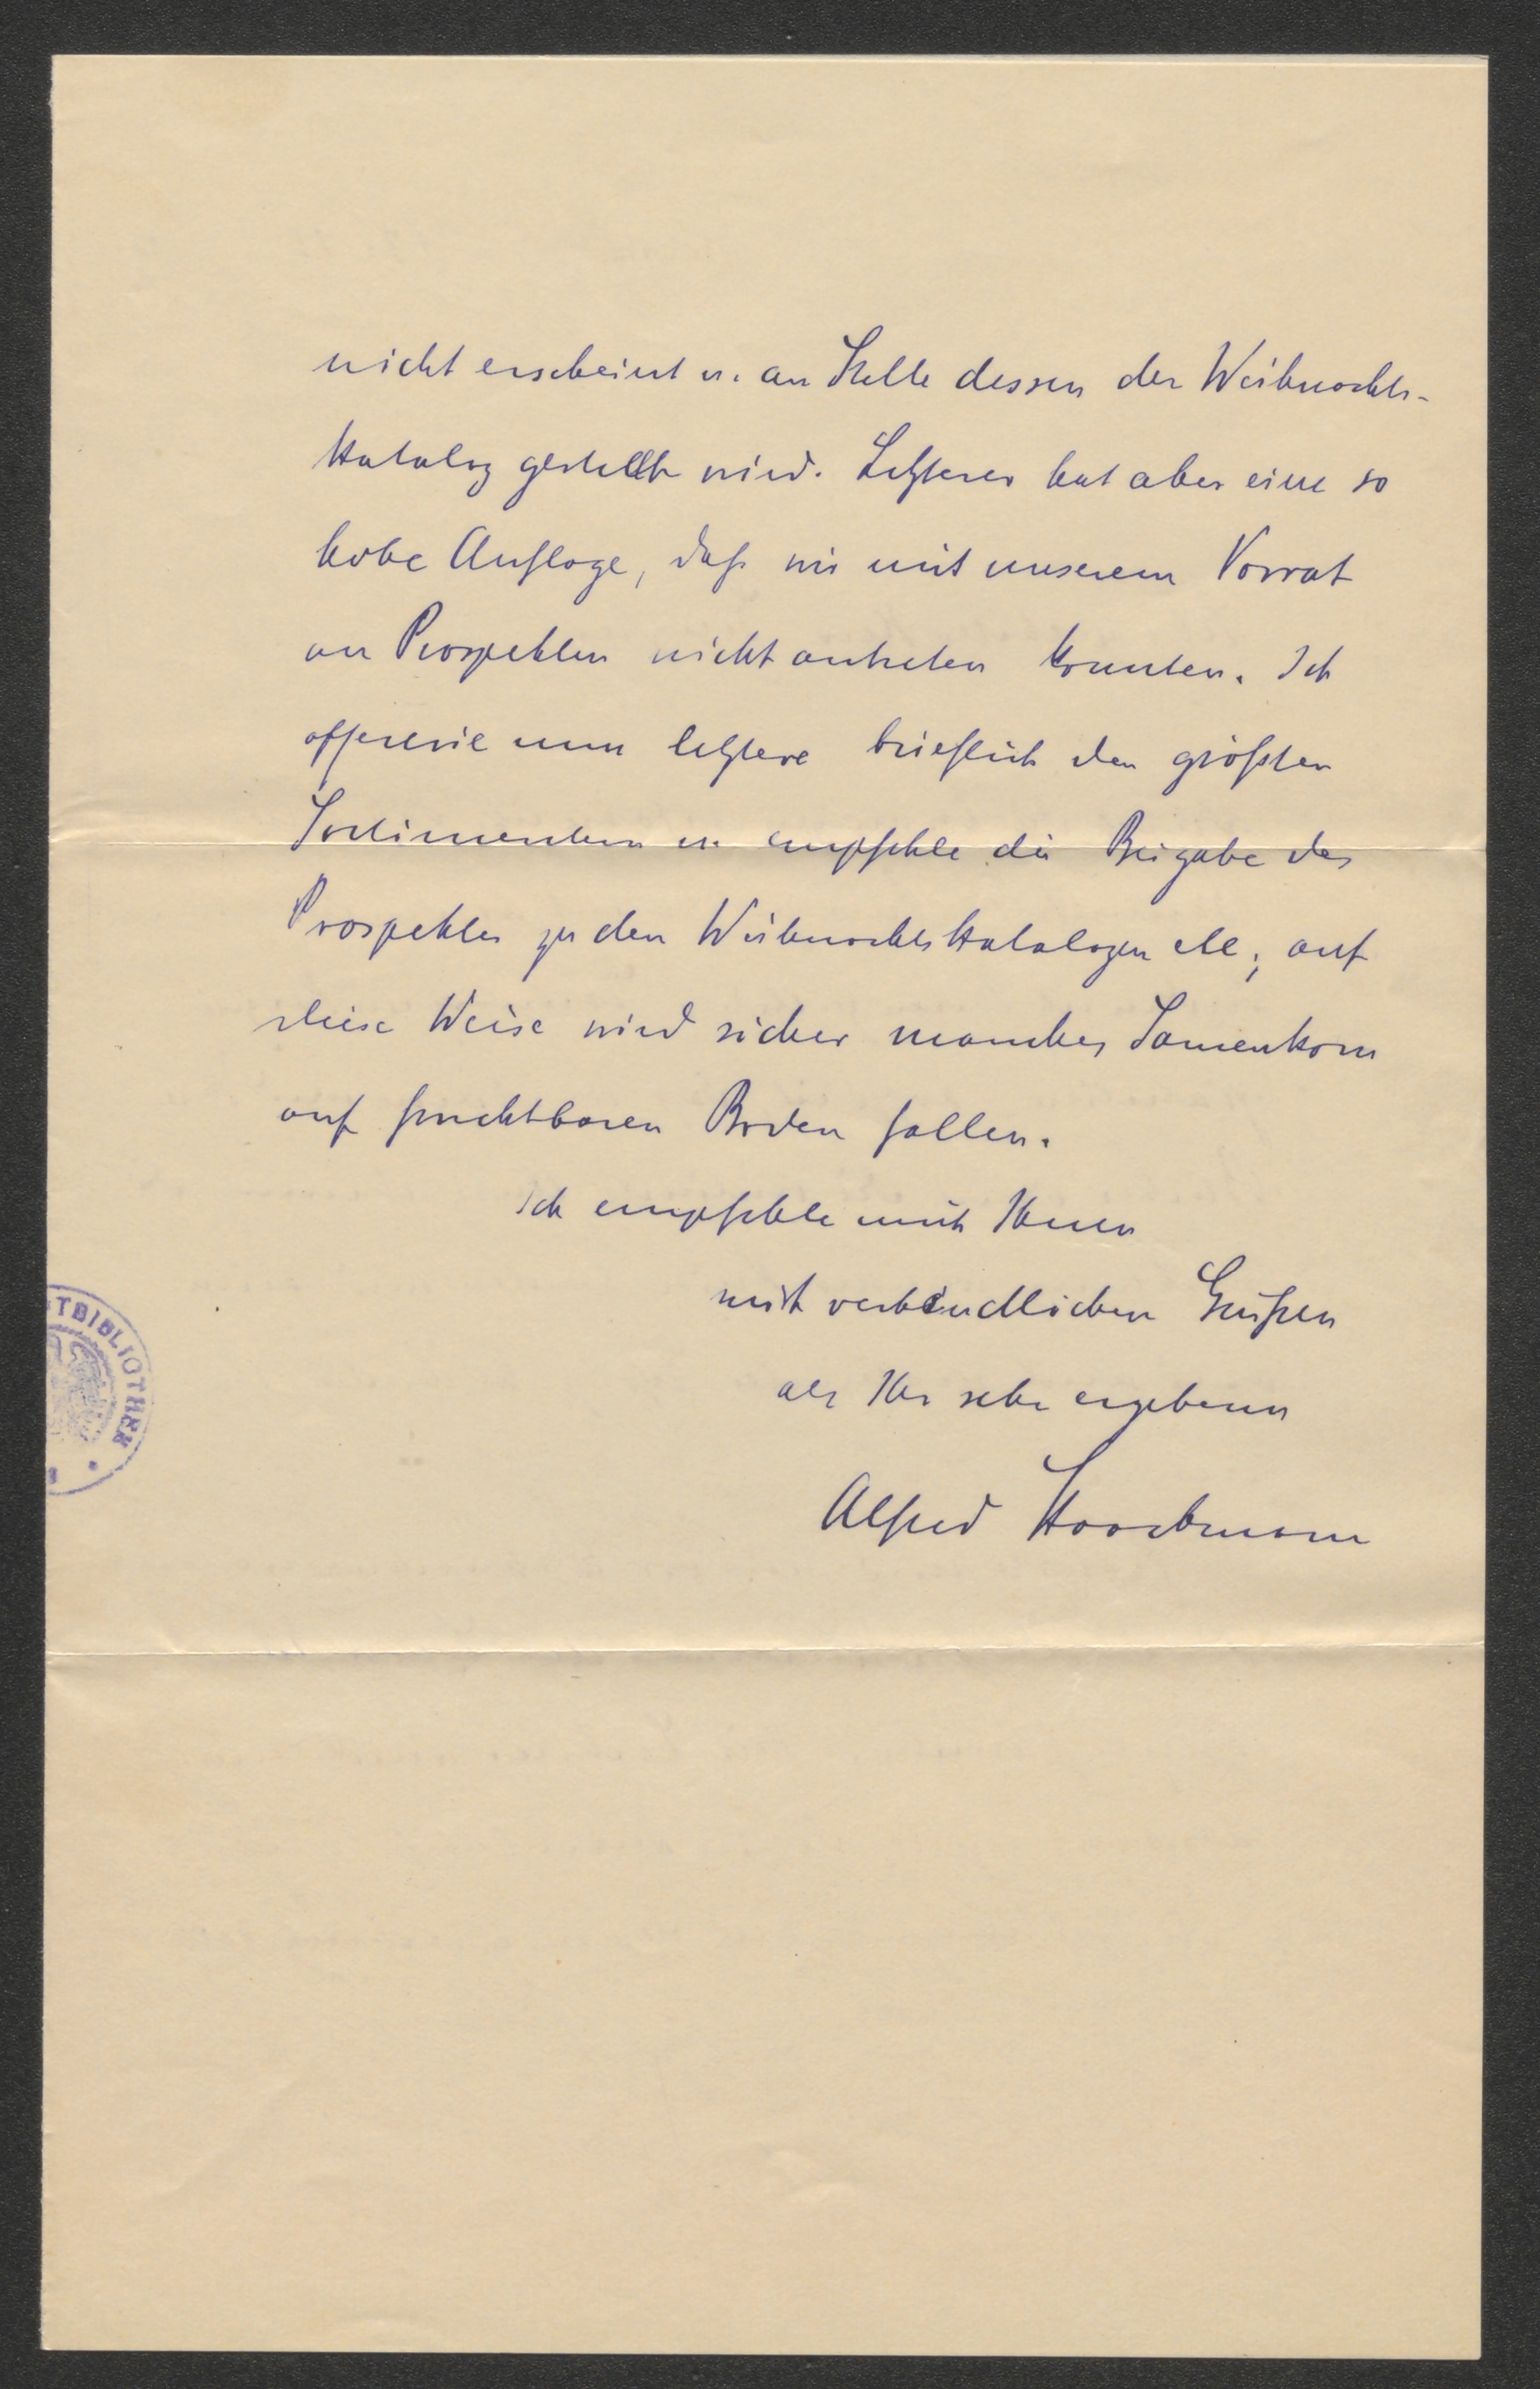 nicht erscheint u. an Stelle dessen der Weihnachts-
katalog gestellt wird. Letzterer hat aber eine so
hohe Auflage, daß wir mit unserem Vorrat
an Prospekten nicht antreten konnten. Ich
offeriere nun letztere brieflich den größten
Sortimentern u. empfehle die Beigabe des
Prospektes zu den Weihnachtskatalogen etc; auf
diese Weise wird sicher manches Samenkorn
auf fruchtbaren Boden fallen.
Ich empfehle mich Ihnen
mit verbindlichen Grüßen
als Ihr sehr ergebener
Alfred
TBIBLIOTHEK